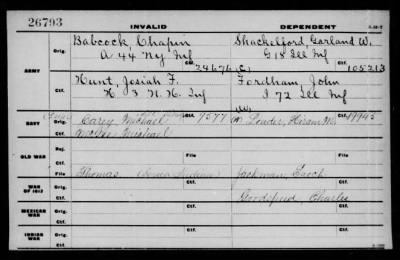 26793
INVALID
DEPENDENT
ARMY
Orig.
Babcock, Chapin
Shackelford, Garland W.
A 44 Ny Inf
G 18 Ill Inf
Ctf.
24676
(C)
Ctf.
105213
Orig.
Hunt, Josiah F.
Fordham, John
H 3 N. H. Inf
I 72 Ill Inf
Ctf.
Ctf.
(W)
NAVY
Orig.
Carey Michael
7577
Leader, Hiram M.
19945
Ctf.
McGee Michael
Ctf.
OLD WAR
Rej.
Ctf.
File
File
WAR OF 1812
Orig.
Thomas
Jackman, Enoch
Ctf.
Goodspeed, Charles
Ctf.
MEXICAN WAR
Orig.
Ctf.
Ctf.
INDIAN WAR
Orig.
Ctf.
Ctf.